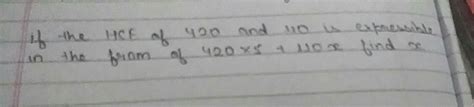 if the HCF of 420 and 110 is expressible
in the fram of 420 x 5 + 110 x find x